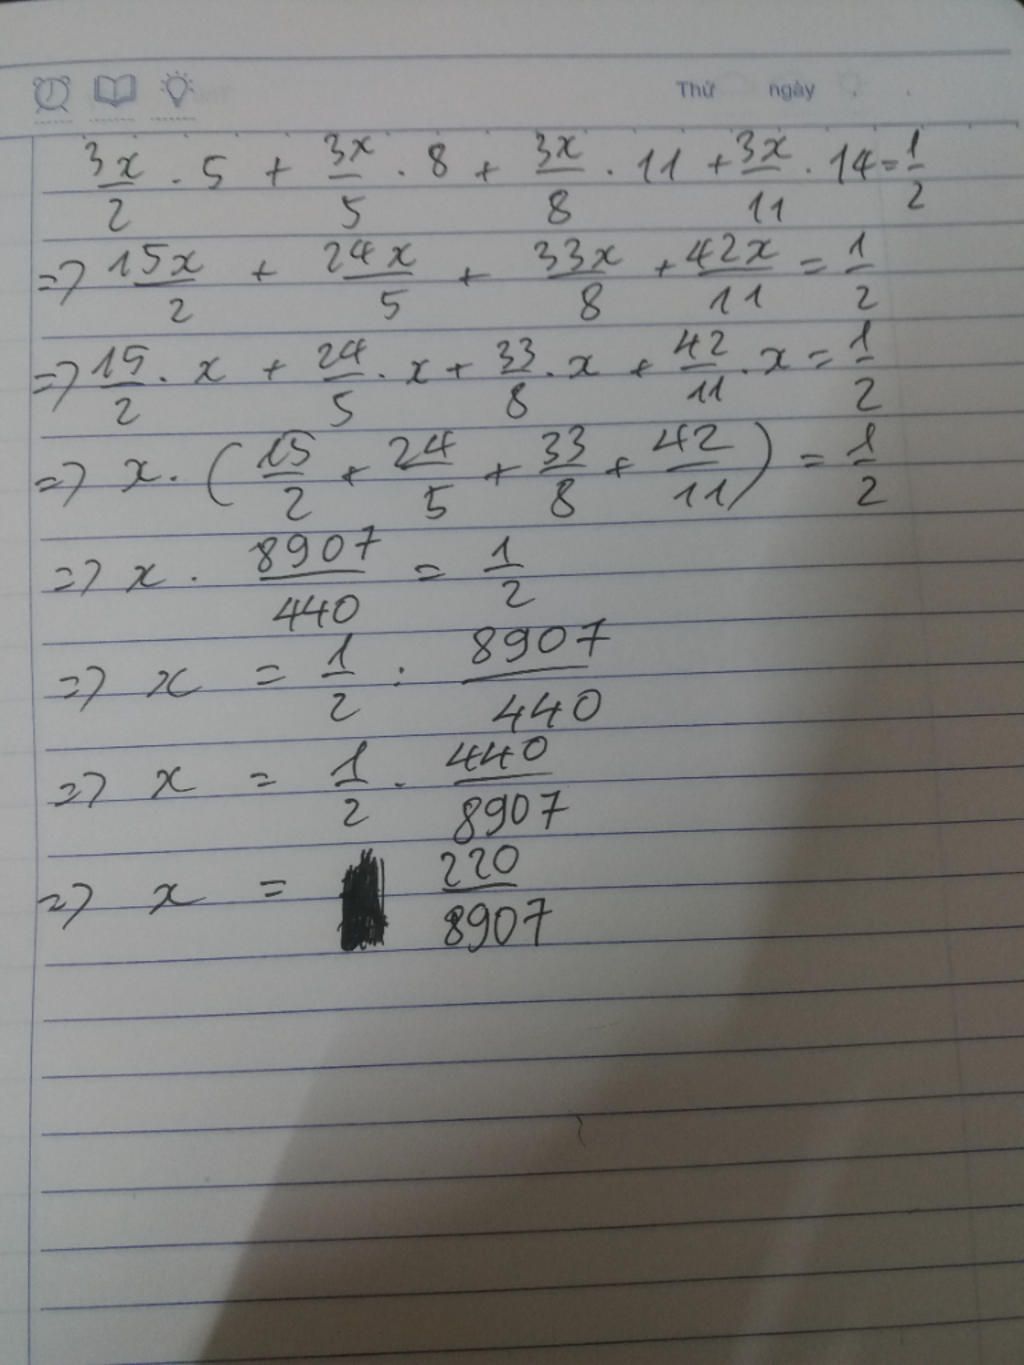 Thứ ngày
3x/2 . 5 + 3x/5 . 8 + 3x/8 . 11 + 3x/11 . 14 = 1/2
=> 15x/2 + 24x/5 + 33x/8 + 42x/11 = 1/2
=> 15/2 . x + 24/5 . x + 33/8 . x + 42/11 . x = 1/2
=> x . (15/2 + 24/5 + 33/8 + 42/11) = 1/2
=> x . 8907/440 = 1/2
=> x = 1/2 : 8907/440
=> x = 1/2 . 440/8907
=> x = 220/8907